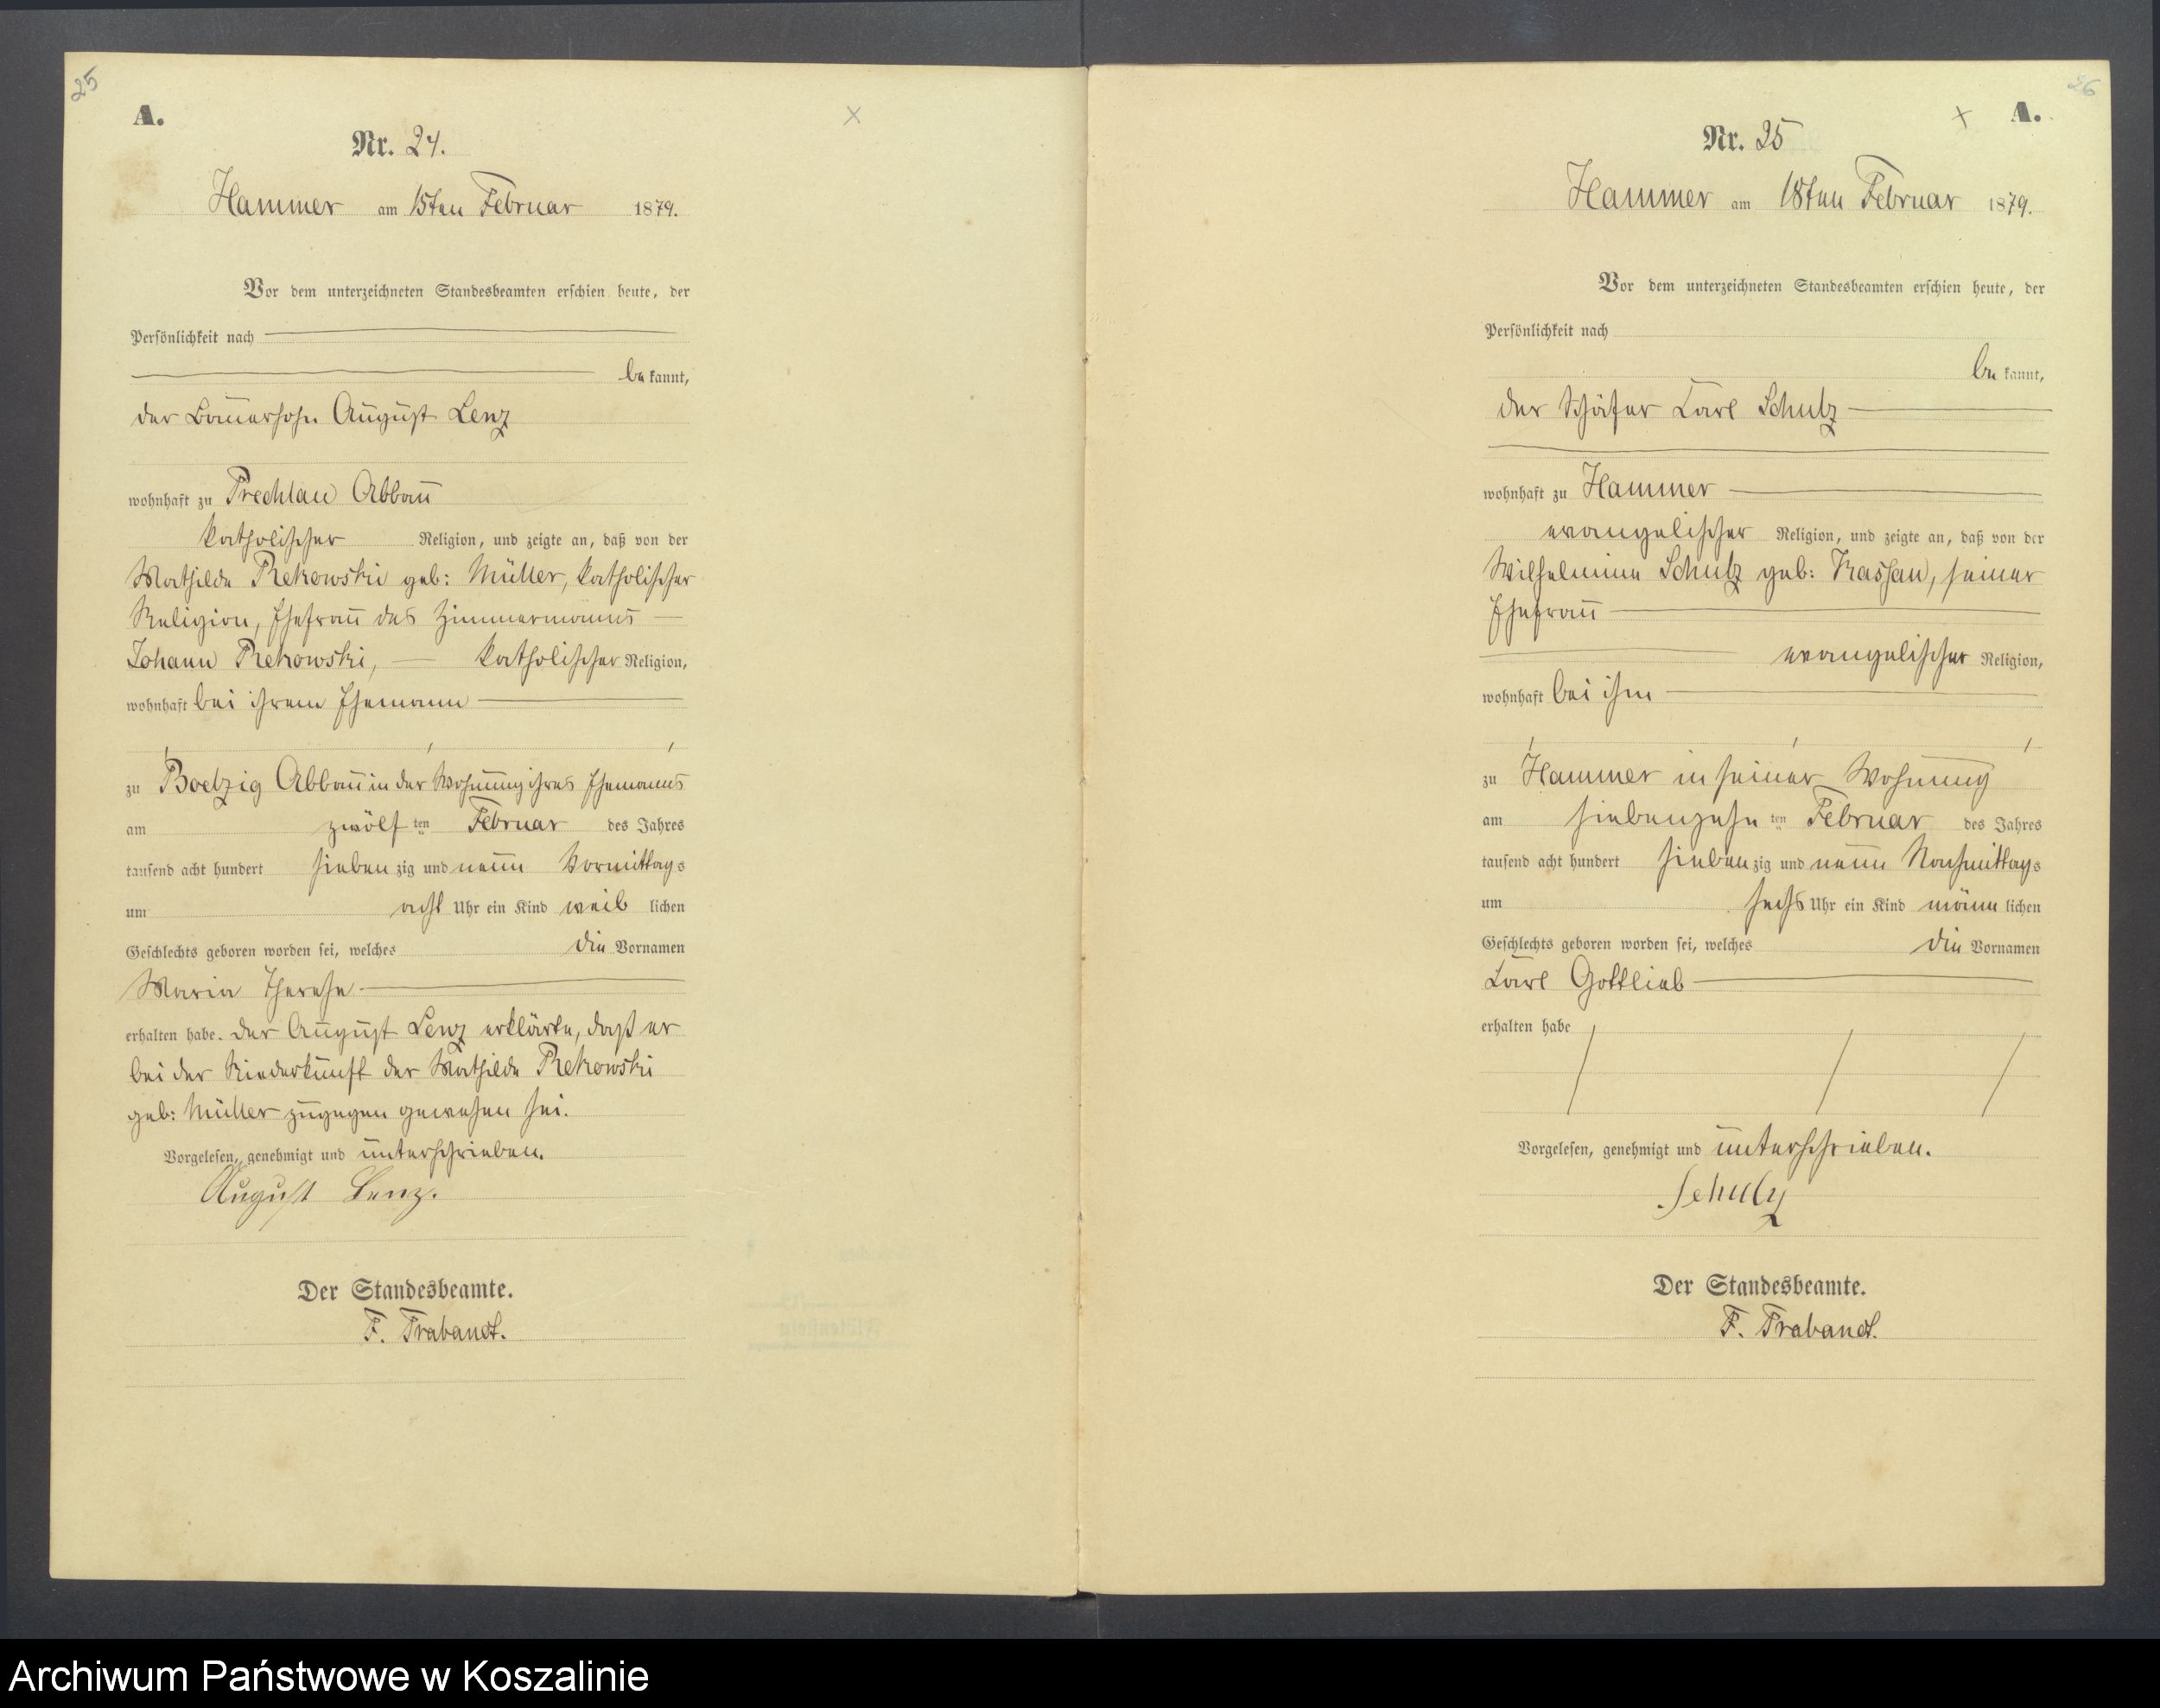 25
A.
Nr. 24.
Hammer am 15ten Februar 1879.
Vor dem unterzeichneten Standesbeamten erschien heute, der
Persönlichkeit nach
be kannt,
der Bauersohn August Lenz
wohnhaft zu Prechlau Abbau
katholischer Religion, und zeigte an, daß von der
Mathilde Rekowski geb: Müller, katholischer
Religion, Ehefrau des Zimmermanns
Johann Rekowski, katholischer Religion,
wohnhaft bei ihrem Ehemann
zu Boelzig Abbau in der Wohnung ihres Ehemanns
am zwölf ten Februar des Jahres
tausend acht hundert sieben zig und neun Vormittags
um acht Uhr ein Kind weib lichen
Geschlechts geboren worden sei, welches die Vornamen
Maria Therese
erhalten habe. Der August Lenz erklärte, daß er
bei der Niederkunft der Mathilde Rekowski
geb: Müller zugegen gewesen sei.
Vorgelesen, genehmigt und unterschrieben.
August Lenz.
Der Standesbeamte.
F. Trabandt.
26
A.
Nr. 25
Hammer am 18ten Februar 1879.
Vor dem unterzeichneten Standesbeamten erschien heute, der
Persönlichkeit nach
be kannt,
der Schäfer Carl Schulz
wohnhaft zu Hammer
evangelischer Religion, und zeigte an, daß von der
Wilhelmine Schulz geb: Kassan, seiner
Ehefrau
evangelischer Religion,
wohnhaft bei ihm
zu Hammer in seiner Wohnung
am siebenzehn ten Februar des Jahres
tausend acht hundert sieben zig und neun Nachmittags
um sechs Uhr ein Kind männ lichen
Geschlechts geboren worden sei, welches die Vornamen
Carl Gottlieb
erhalten habe
Vorgelesen, genehmigt und unterschrieben.
Schulz
Der Standesbeamte.
F. Trabandt.
Archiwum Państwowe w Koszalinie